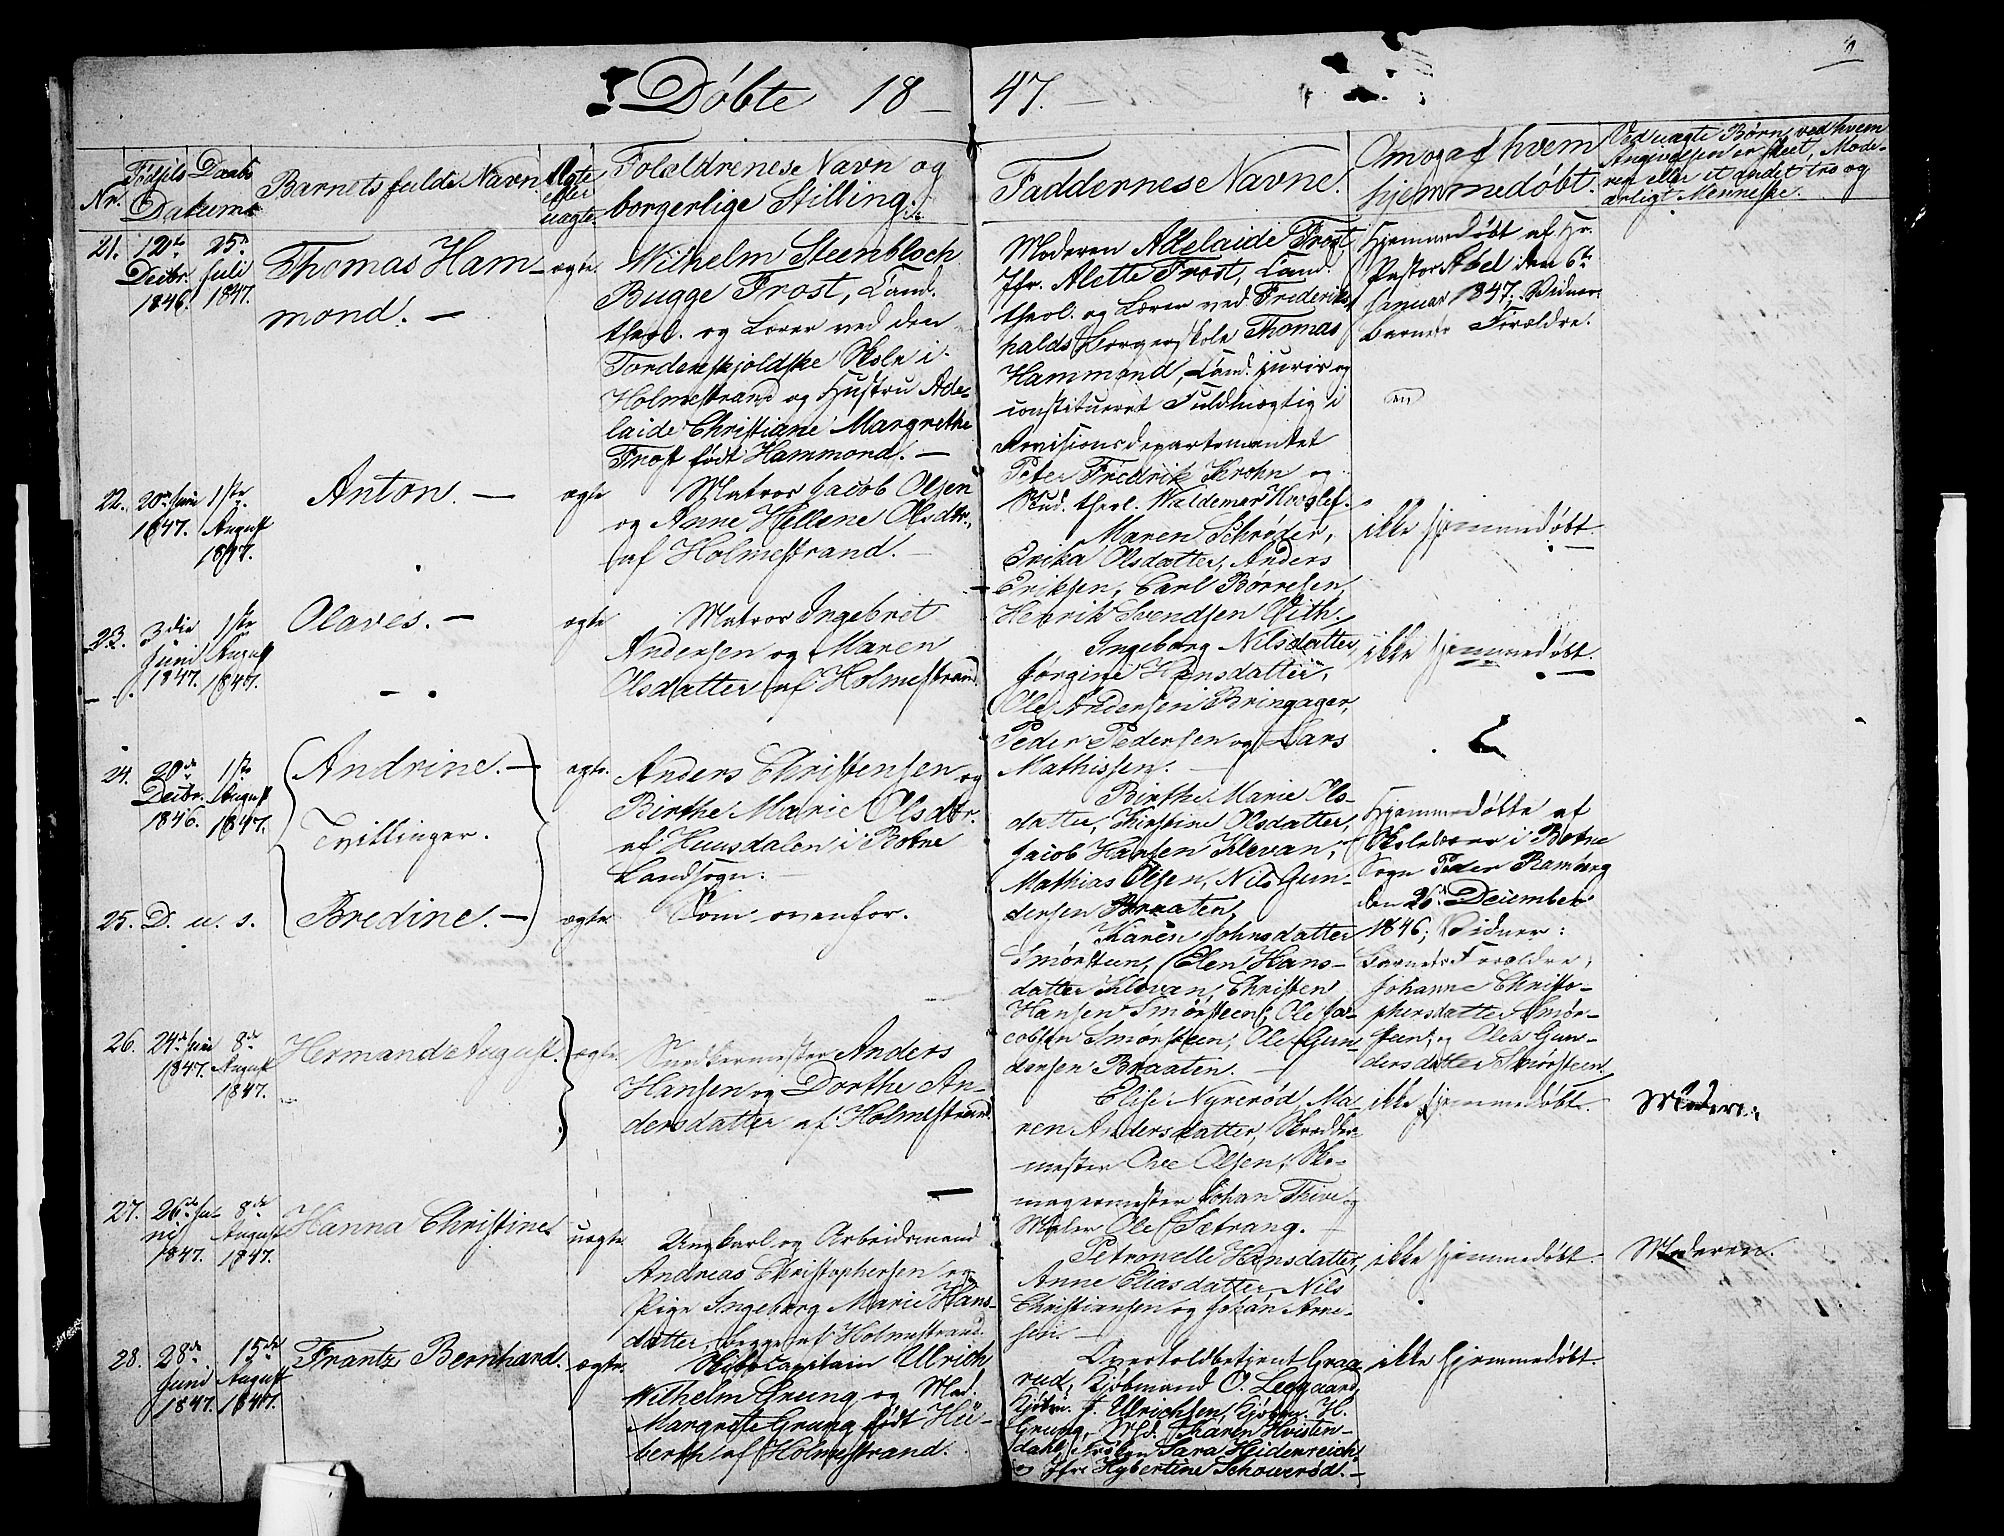 Døbte 18 — 47.
Nr.
Fødsels Daabs
Datum
Barnets fulde Navn
Ægte
eller
uægte.
Forældrenes Navn og
borgerlige Stilling.
Faddernes Navne.
Om og af hvem
hjemmedøbt.
Ved uægte Børn, ved hvem
Angivelsen er skeet, Mode-
ren eller et andet tro og
ærligt Menneske.
21. 12te Decbr. 1846. 25de Juli 1847.
Thomas Ham-
mond. —
ægte.
Wilhelm Steenbloch
Bugge Frost, Cand.
theol. og Lærer ved den
Tordenskjoldske Skole i
Holmestrand og Hustru Ade-
laide Christiane Margrethe
Frost født Hammond. —
Moderen Adelaide Frost,
Jfr. Alette Frost, Cand.
theol. og Lærer ved Frederiks-
halds Borgerskole Thomas
Hammond, Cand. juris og
constitueret Fuldmægtig i
Revisionsdepartementet
Peter Fredrik Krohn og
Stud. theol. Waldemar
Hjemmedøbt af Hr.
Pastor Abel den 6te
Januar 1847. Vidner:
Barnets Forældre.
22. 20de Juni 1847. 1ste August 1847.
Anton. —
ægte
Matros Jacob Olsen
og Anne Hellene Olsdtr.
af Holmestrand. —
Maren Schrøder,
Erika Olsdatter, Anders
Eriksen, Carl Børresen,
Henrik Svendsen With.
ikke hjemmedøbt.
23. 3die Juni 1847. 1ste August 1847.
Olaves. —
ægte
Matros Ingebret
Andersen og Maren
Olsdatter af Holmestrand.
Ingeborg Nilsdatter,
Jørgine Hansdatter,
Ole Andersen Bringager,
Peder Pedersen og Lars
Mathissen. —
ikke hjemmedøbt.
24. 20de Decbr. 1846. 1ste August 1847.
Andrine. —
Tvillinger.
ægte.
Anders Christensen og
Birthe Marie Olsdtr.
af Huusdalen i Botne
Landsogn. —
Birthe Marie Ols-
datter, Kirstine Olsdatter,
Jacob Hansen Klevan,
Mathias Olsen, Nils Gun-
dersen Braaten,
Hjemmedøbte af
Skolelærer i Botne
Sogn Peder Ramberg
den 26. December
1846; Vidner:
Barnets Forældre,
Johanne Christo-
phersdatter Smør-
steen, og Olea Gun-
dersdatter Smørsteen.
25. D. u. s.
Bredine. —
ægte
Som ovenfor.
Karen Johnsdatter
Smørsteen, Elen Hans-
datter Klevan, Christen
Hansen Smørsteen, Ole Ja-
cobsen Smørsteen, Ole Gun-
dersen Braaten. —
26. 24de Juni 1847. 8de August 1847.
Herman August.
ægte.
Snedkermester Anders
Hansen og Dorthe An-
dersdatter af Holmestrand.
Elise Nyrerød, Ma-
ren Andersdatter, Skrædder-
mester Ole Olsen, Sko-
magermester Johan Thire og
Maler Ole Sætrang. —
ikke hjemmedøbt.
Moderen.
27. 26de Ju-
ni 1847. 8de August 1847.
Hanna Christine
uægte.
Ungkarl og Arbeidsmand
Andreas Christophersen og
Pige Ingeborg Marie Hans-
datter, begge af Holmestrand.
Petronelle Hansdatter,
Anne Eliasdatter, Nils
Christiansen og Johan Arne-
sen. —
ikke hjemmedøbt.
Moderen.
28. 28de Juni 1847. 15de August 1847.
Frantz Bernhard.
ægte.
Skibscapitain Ulrich
Wilhelm Grung og Mad.
Margrete Grung født Hü-
berth af Holmestrand.
Overtoldbetjent Graa-
rud, Kjøbmand O. Leegaard,
Kjøbm. F. Ulrichsen, Kjøbm. H.
Grung, Md. Karen Hvisten-
dahl, Frøken Sara Heidenreich
og Jfr. Hybertine Schowerød. —
ikke hjemmedøbt.